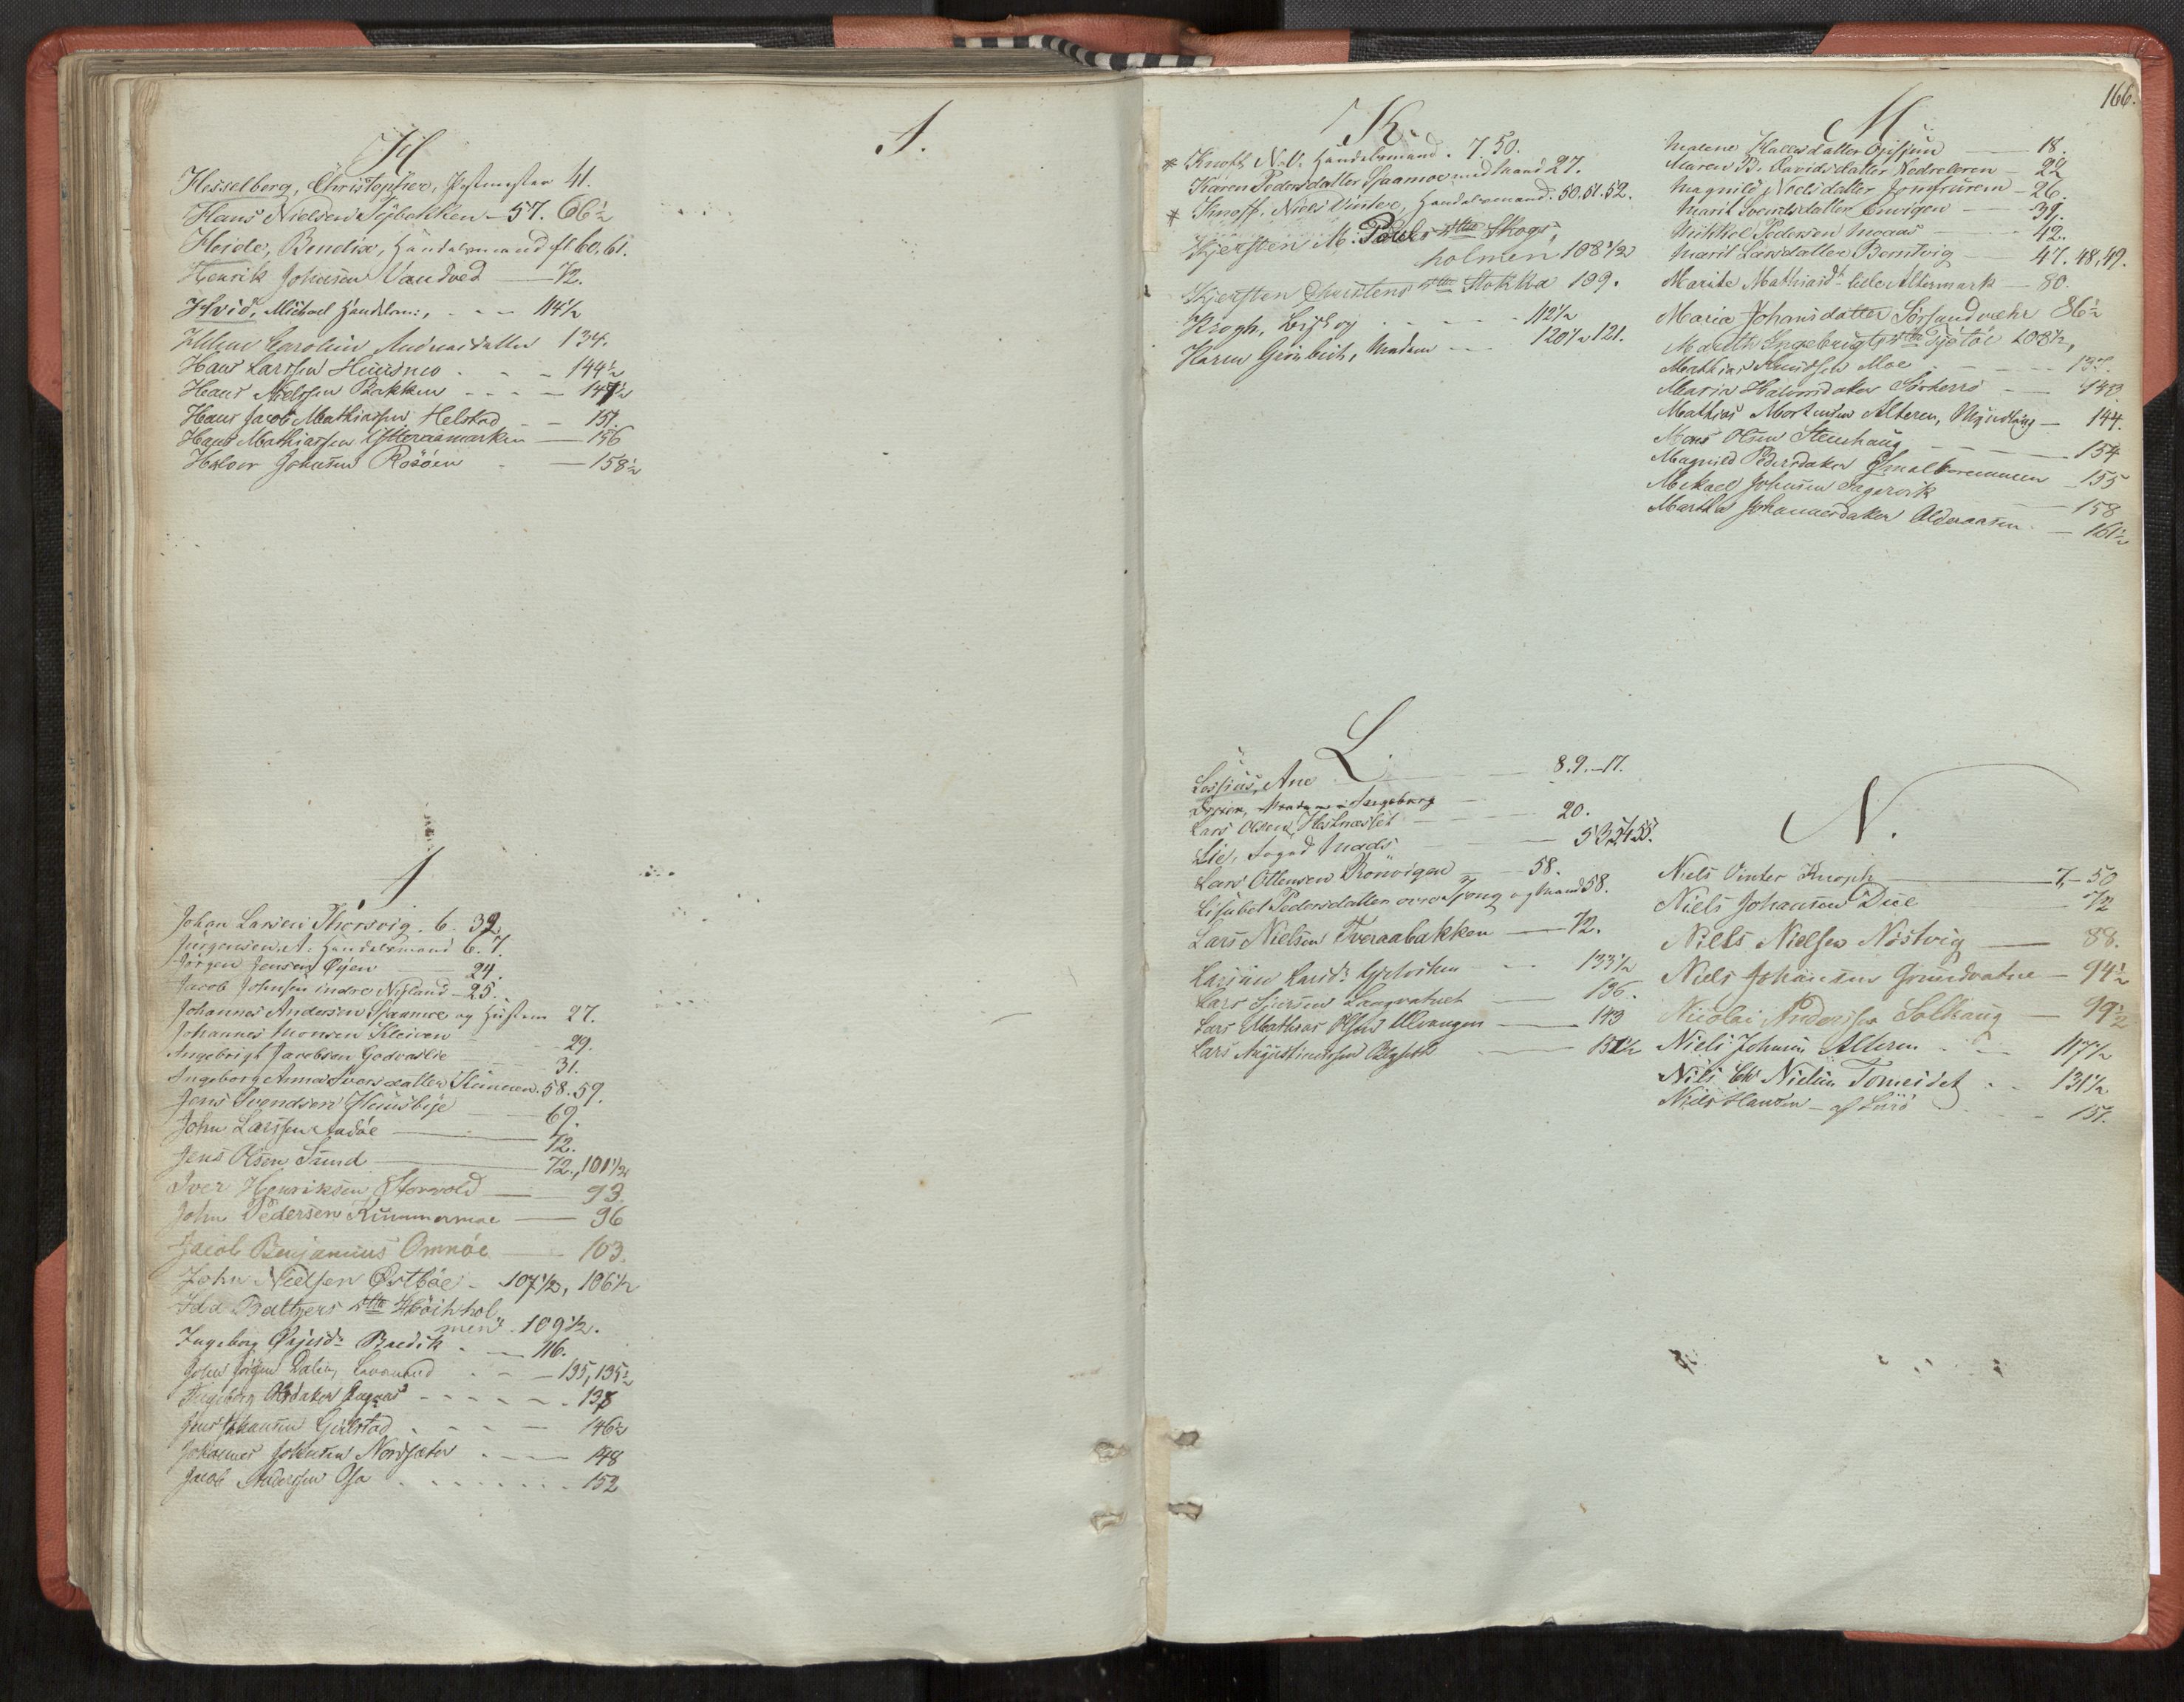 H
Hesselberg, Christopher, Postmester 41.
Hans Nielsen Sÿbakken - 57. 66½
Heide, Bendix, Handelsmand fl 60, 61.
Henrik Johnsen Vandved — 72.
Hvid, Michael Handelsm: - - - 114½
Helene Caroline Andreasdatter 134.
Hans Larssen Huusmo - - - 144½
Hans Nielssen Bakken - - - - 147½
Hans Jacob Mathiassen Helstad - - 151.
Hans Mathiassen Ytteraamarken — 156
Halvor Johnsen Rosöien - — 158½
I.
I
Johan Larsen Thorsvig. 6. 32
Jürgensen. A. Handelsmand 6. 7.
Jörgen Jensen Öÿen — 24.
Jacob Johnsen indre Nÿland - 25.
Johannes Andersen Spaamoe og Hustru 27.
Johannes Monsen Kleiven — 29.
Ingebrigt Jacobsen Godvaslie — 31.
Ingeborg Anna Iversdatter 58. 59.
Jens Svendsen Huusbÿe — 69.
John Larssen Andöe — 72.
Jens Olsen Sund — 72., 101½
Iver Henriksen Storvold — 93.
John Pedersen Krummermoe — 96
Jacob Benjamins Omnöe — 103.
John Nielsen Östböe - 107½, 106½
Ida Baltzers dtter Höihhol
men 109½.
Ingeborg Bredik - — 116.
John Jörgen Dalen, - - — 135, 135½
Ingeborg Olsdatter - - - - - 138
Jens Johansen - - - — 146½
Johannes Johnsen Nordsæter - - — 148
Jacob Anderssen Osa - - - - - - 152
166.
K.
* Knoff, N. V. Handelsmand. 7. 50.
Karen Pedersdatter Spaamoe med Mand 27.
* Knoff, Niels Vinter, Handelsmand. 50. 51. 52.
Kjersten M. Pouls dtter Skogs,
holmen 108½
Kjersten Christens dtter Stokka 109.
Krogh, Biskop - - - - 112½
Karen Grönbech, Madam - - 120½ 121.
L.
Lossius, Ane — 8. 9. - 17.
Madame Ingeborg —
Lars Olsen Hestnæsset — 20.
Lie, Foged Mads — 53, 54, 55.
Lars Ottensen Rönvigen — 58.
Lisabet Pedersdatter övre Tjong og Mand 58.
Lars Nielsen Tveraabakken — 72.
- - - 133½
Lars Sjursen Langvatnet — 136.
Lars Mathias Olsen Ulvangen — 143
Lars Augustinussen - — 151½
M
Malene Hallesdatter — 18.
Maren B. Davidsdatter Nedreleren — 22
Magnild Nielsdatter Jomfruren — 26.
Marit Svendsdatter Envigen — 39.
Mikkel Pedersen Moaas — 42.
Marit Larsdatter Berntvig — 47. 48, 49.
Marite Mathiasdr. lille Altermark — 80.
Maria Johansdatter Sörsandværke 86½
Mareth Ingebrigts dtter Tjötöe 108½,
Mathias Knudsen Moe - - - - 137.
Maria Halvorsdatter Sörherrö - — 143.
Mathias Mortensen Alteren, Myndling — 144.
Mons Olsen Steenhaug - - — 154
Magnild Pedersdatter - 155
Mikael Johnsen Fagervik — 158
Martha Johannesdatter Olderaasen — 161½
N.
Niels Vinter Knoph — 7, - 50
Niels Johansen Due — 72
Niels Nielsen Nöstvig — 88.
Niels Johansen Grundvatne — 94½
Nicolai Anderssen Solhaug — 99½
Niels Johnsen Alteren - - - 117½
Nils Chr Nielsen Tomeidet - - 131½
Niels Hansen - af Lurö - - - 151.